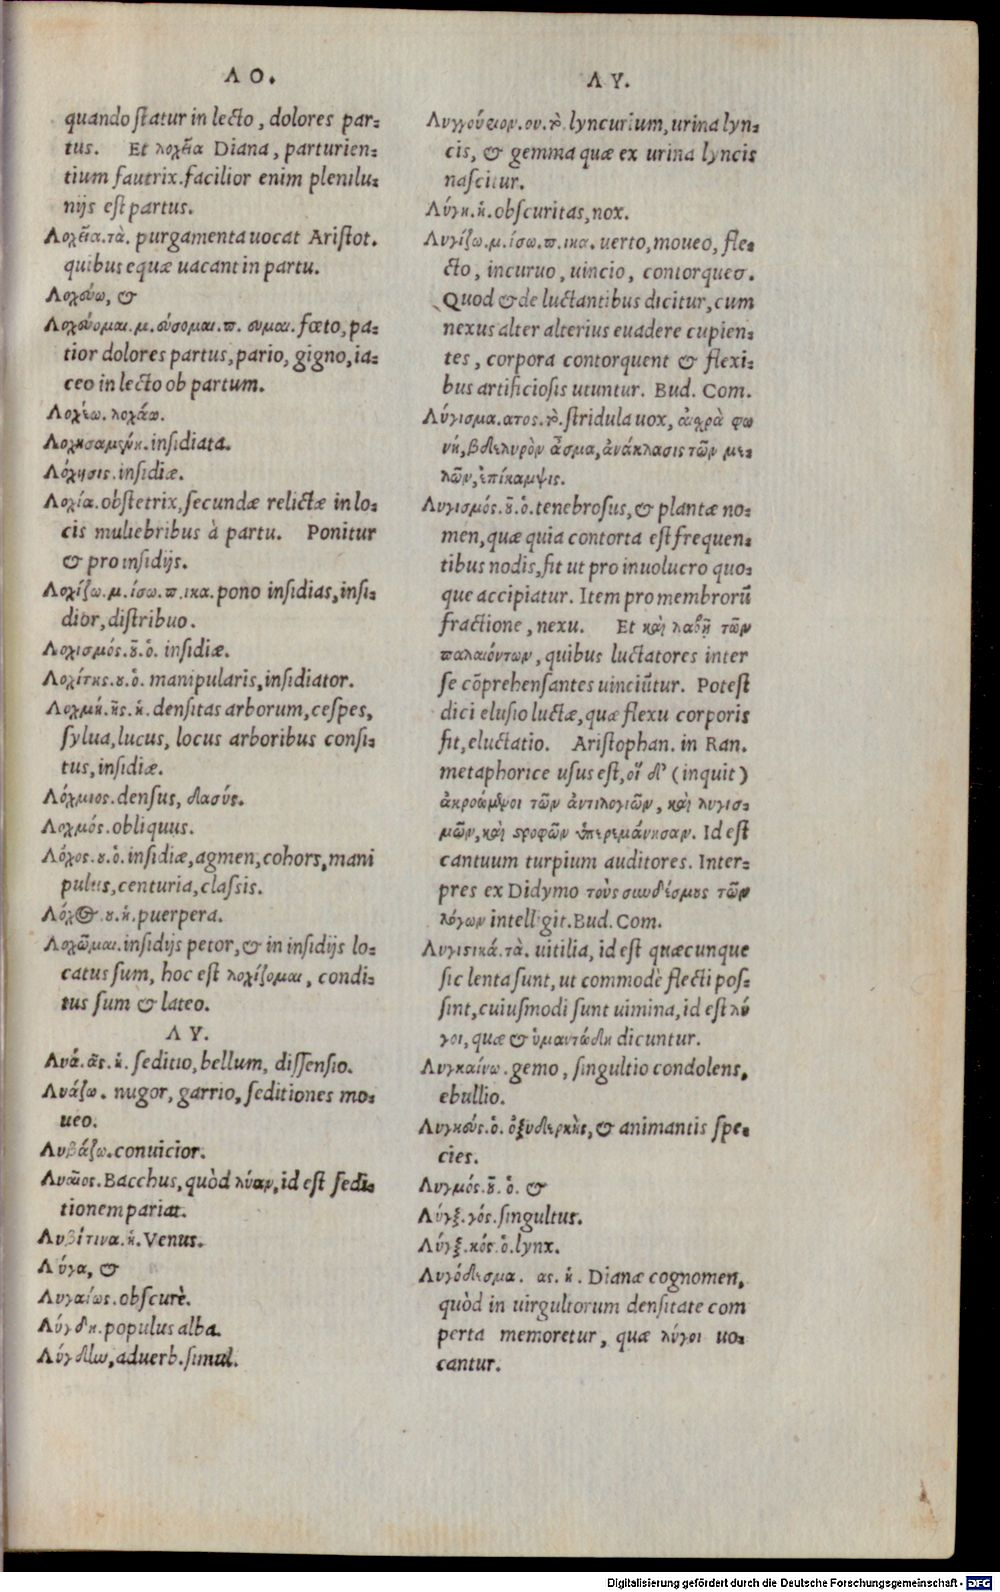 ΛΟ.
quando statur in lecto, dolores par-
tus. Et λοχεία Diana, parturien-
tium fautrix. facilior enim plenilu-
nijs est partus.
Λοχεῖα. τὰ. purgamenta uocat Aristot.
quibus equæ uacant in partu.
Λοχεύω, &
Λοχεύομαι. μ. εύσομαι. π. ευμαι. fœto, pa-
tior dolores partus, pario, gigno, ia-
ceo in lecto ob partum.
Λοχέω. λοχάω.
Λοχησαμένη. insidiata.
Λόχησις. insidiæ.
Λοχία. obstetrix, secundæ relictæ in lo-
cis muliebribus à partu. Ponitur
& pro insidijs.
Λοχίζω. μ. ίσω. π. ικα. pono insidias, insi-
dior, distribuo.
Λοχισμός. οῦ. ὁ. insidiæ.
Λοχίτης. ου. ὁ. manipularis, insidiator.
Λοχμή. ῆς. ἡ. densitas arborum, cespes,
sylua, lucus, locus arboribus consi-
tus, insidiæ.
Λόχμιος. densus, δασύς.
Λοχμός. obliquus.
Λόχος. ου. ὁ. insidiæ, agmen, cohors, mani
pulus, centuria, classis.
Λόχος. ου. ἡ. puerpera.
Λοχῶμαι. insidijs petor, & in insidijs lo-
catus sum, hoc est λοχίζομαι, condi-
tus sum & lateo.
ΛΥ.
Λυά. ᾶς. ἡ. seditio, bellum, dissensio.
Λυάζω. nugor, garrio, seditiones mo-
ueo.
Λυβάζω. conuicior.
Λυαῖος. Bacchus, quòd λύαν, id est sedi-
tionem pariat.
Λυβίτινα. ἡ. Venus.
Λύγα, &
Λυγαίως. obscurè.
Λύγδη. populus alba.
Λύγδην, aduerb. simul.
ΛΥ.
Λυγγούριον. ου. τὸ. lyncurium, urina lyn-
cis, & gemma quæ ex urina lyncis
nascitur.
Λύγη. ἡ. obscuritas, nox.
Λυγίζω. μ. ίσω. π. ικα. uerto, moueo, fle-
cto, incuruo, uincio, contorqueo.
Quod & de luctantibus dicitur, cum
nexus alter alterius euadere cupien-
tes, corpora contorquent & flexi-
bus artificiosis utuntur. Bud. Com.
Λύγισμα. ατος. τὸ. stridula uox, αἰχρὰ φω
νή, βδελυρὸν ᾆσμα, ἀνάκλασις τῶν με-
λῶν, ἐπίκαμψις.
Λυγισμός. οῦ. ὁ. tenebrosus, & plantæ no-
men, quæ quia contorta est frequen-
tibus nodis, fit ut pro inuolucro quo-
que accipiatur. Item pro membrorū
fractione, nexu. Et καὶ λαβὴ τῶν
παλαιόντων, quibus luctatores inter
se cōprehensantes uinciūtur. Potest
dici elusio luctæ, quæ flexu corporis
fit, eluctatio. Aristophan. in Ran.
metaphorice usus est, οἵ δ' (inquit)
ἀκροώμενοι τῶν ἀντιλογιῶν, καὶ λυγισ-
μῶν, καὶ στροφῶν ὑπερεμάνησαν. Id est
cantuum turpium auditores. Inter-
pres ex Didymo τοὺς συνδέσμους τῶν
λόγων intelligit. Bud. Com.
Λυγιστικά. τὰ. uitilia, id est quæcunque
sic lenta sunt, ut commodè flecti pos-
sint, cuiusmodi sunt uimina, id est λύ
γοι, quæ & ὑμαντώδη dicuntur.
Λυγκαίνω. gemo, singultio condolens,
ebullio.
Λυγκεύς. ὁ. ὀξυδερκὴς, & animantis spe-
cies.
Λυγμός. οῦ. ὁ. &
Λύγξ. γός. singultus.
Λύγξ. κός. ὁ. lynx.
Λυγόδεσμα. ας. ἡ. Dianæ cognomen,
quòd in uirgultorum densitate com
perta memoretur, quæ λύγοι uo-
cantur.
Digitalisierung gefördert durch die Deutsche Forschungsgemeinschaft - DFG